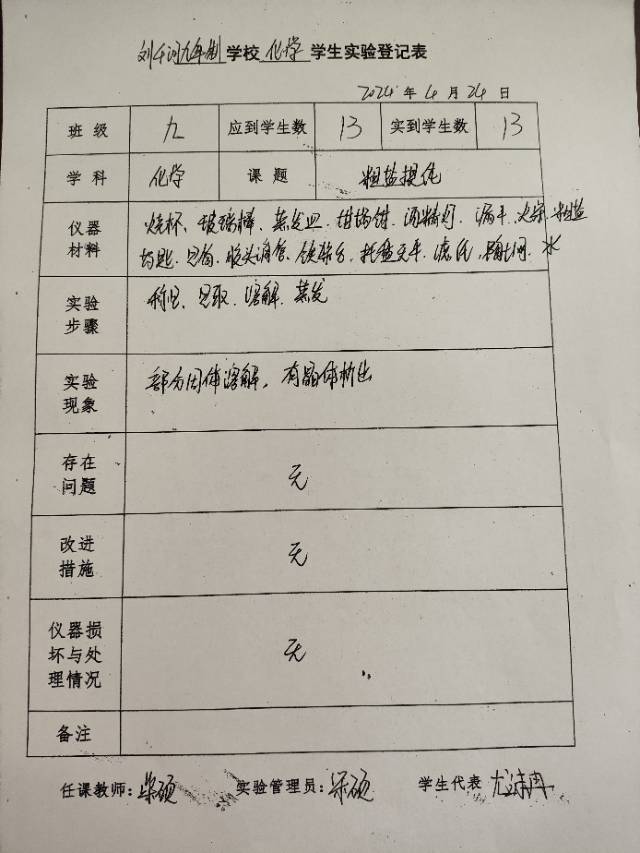 刘千河九年制学校 化学 学生实验登记表
2024 年 4 月 24 日
班 级 九 应到学生数 13 实到学生数 13
学 科 化学 课 题 粗盐提纯
仪器材料 烧杯、玻璃棒、蒸发皿、坩埚钳、酒精灯、漏斗、火柴、粗盐
药匙、量筒、胶头滴管、铁架台、托盘天平、滤纸、水
实验步骤 称量、量取、溶解、蒸发
实验现象 部分固体溶解,有晶体析出
存在问题 无
改进措施 无
仪器损坏与处理情况 无
备注
任课教师: 梁硕 实验管理员: 梁硕 学生代表